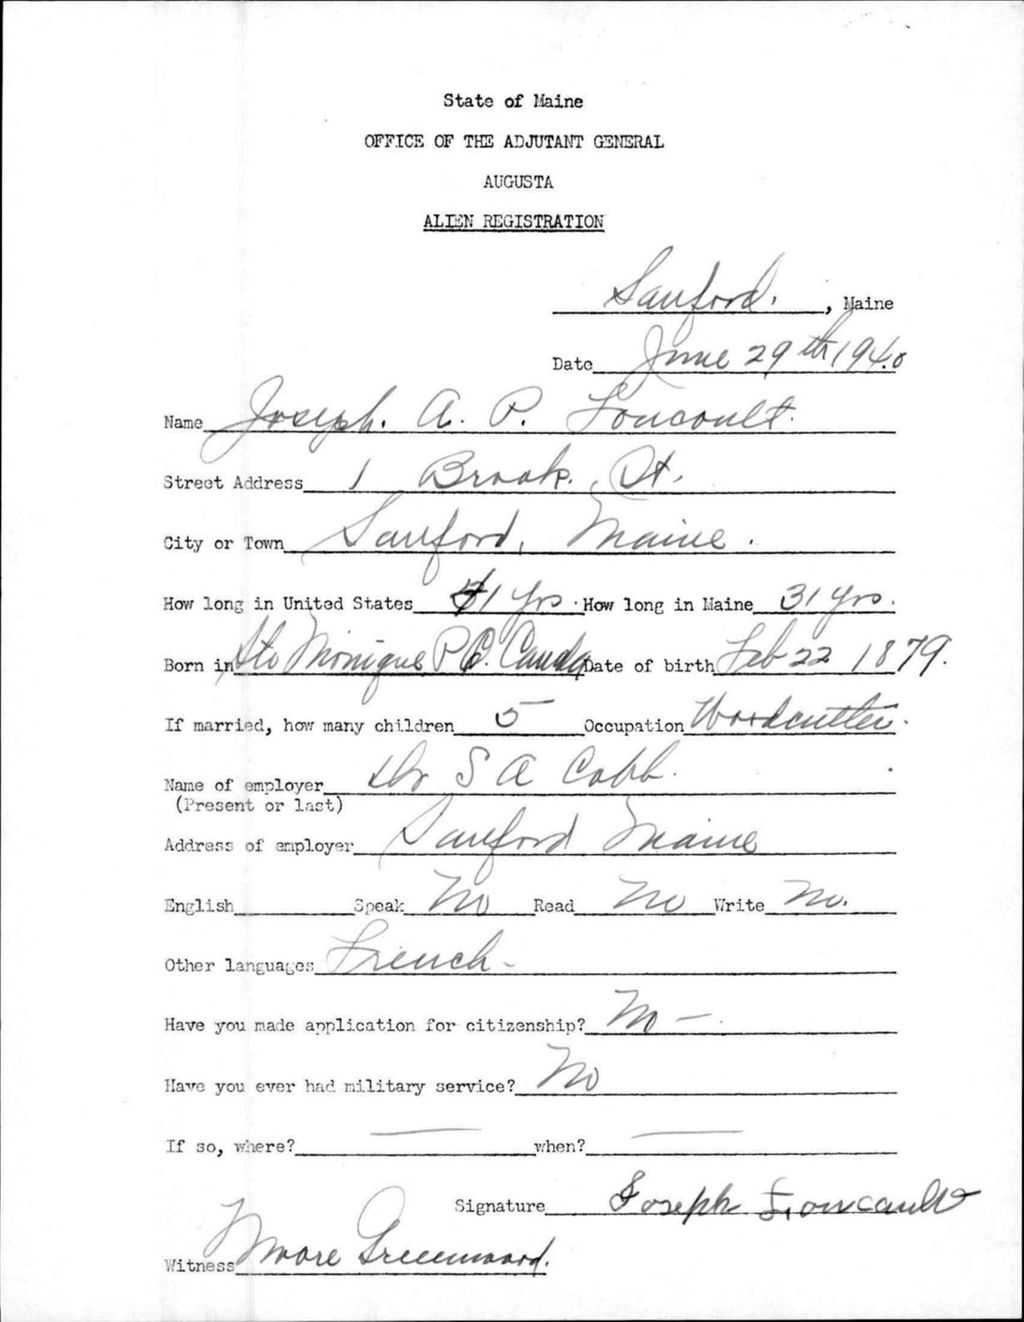 State of Maine
OFFICE OF THE ADJUTANT GENERAL
AUGUSTA
ALIEN REGISTRATION
Sanford. , Maine
Date June 29th 1940
Name Joseph. A. P. Foucoult.
Street Address 1 Brook. St.
City or Town Sanford, Maine.
How long in United States 41 yrs. How long in Maine 31 yrs.
Born in Ste Monique P.Q. Canada Date of birth Feb 22 1879.
If married, how many children 5 Occupation Woodcutter.
Name of employer Dr S A Cobb.
(Present or last)
Address of employer Sanford Maine
English Speak No Read No Write No.
Other languages French -
Have you made application for citizenship? No -
Have you ever had military service? No
If so, where? — when? —
Signature Joseph Foucault
Witness Moore Greenwood.